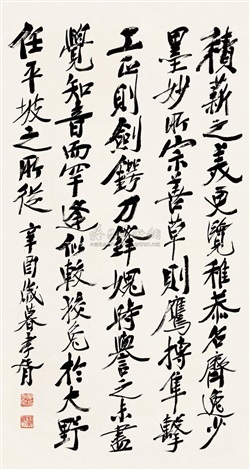 積薪之美更覽稚恭名齊逸少
墨妙所宗善草則鷹搏隼擊
工正則劍鍔刀鋒愧時譽之未盡
覺知音而罕逢似較狡兔於大野
任平坡之所從 辛酉歲暮孝胥